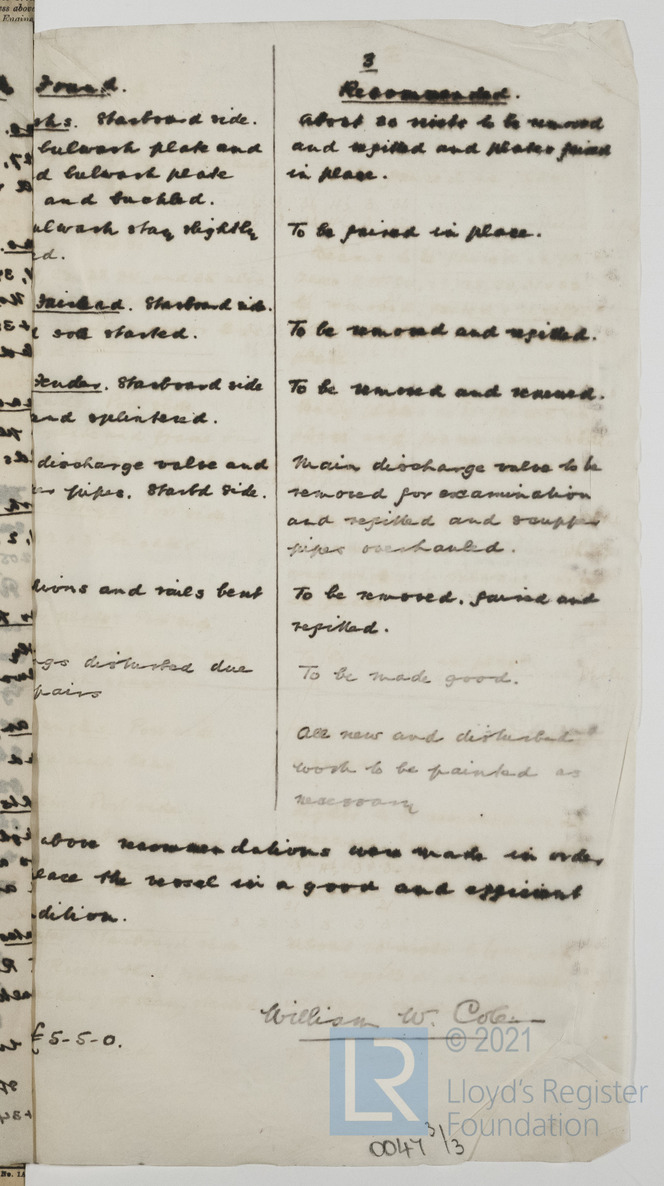 3
Found.
Recommended.
rks. Starboard side.
bulwark plate and
d bulwark plate
and buckled.
ulwark stay slightly
d.
About 20 rivets to be removed
and refitted and plates faired
in place.
To be faired in place.
Fairlead. Starboard side.
d sole started.
To be removed and refitted.
Fender. Starboard side
and splintered.
To be removed and renewed.
discharge valve and
er pipes. Starbd side.
Main discharge valve to be
removed for examination
and refitted and scupper
pipes overhauled.
tions and rails bent
To be removed, faired and
refitted.
ngs disturbed due
pairs
To be made good.
All new and disturbed
work to be painted as
necessary
above recommendations were made in order
lace the vessel in a good and efficient
dition.
William W. Coles
£5-5-0.
© 2021
LR
Lloyd's Register
Foundation
0047 3/3